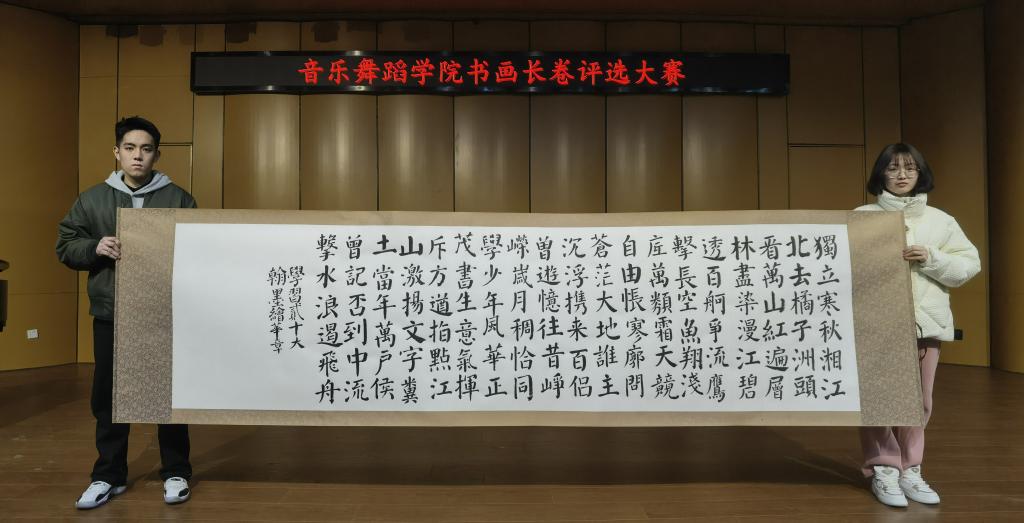 音乐舞蹈学院书画长卷评选大赛
獨立寒秋湘江
北去橘子洲頭
看萬山紅遍層
林盡染漫江碧
透百舸爭流鷹
擊長空魚翔淺
底萬類霜天競
自由悵寥廓問
蒼茫大地誰主
沉浮携来百侣
曾遊憶往昔崢
嶸歲月稠恰同
學少年風華正
茂書生意氣揮
斥方遒指點江
山激揚文字糞
土當年萬户侯
曾記否到中流
擊水浪遏飛舟
學習貳十大
翰墨繪華章